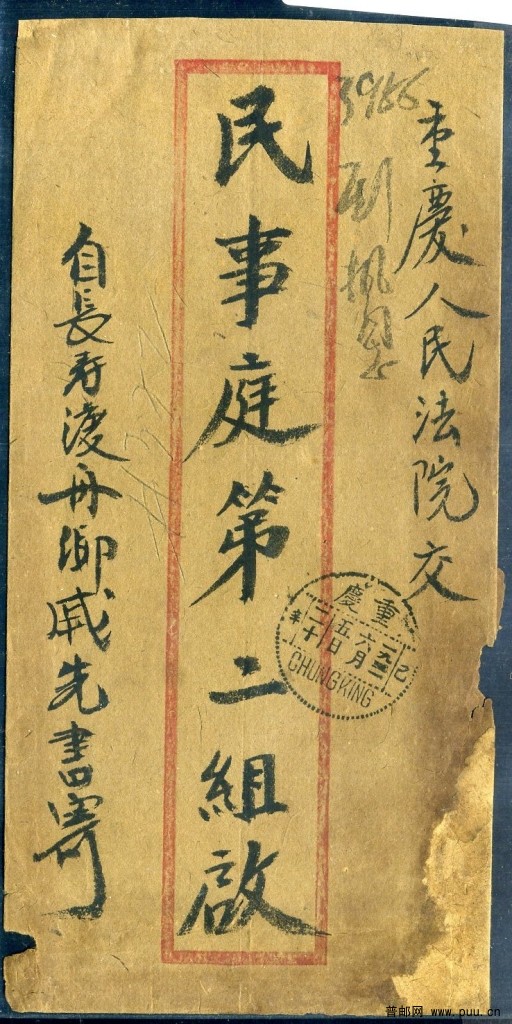 重慶人民法院交
3966
民事庭第二組啟
自長寿渡舟鄉戚先書寄
重慶
一九五二
六月
五日
二十
CHUNGKING
普邮网 www.puu.cn